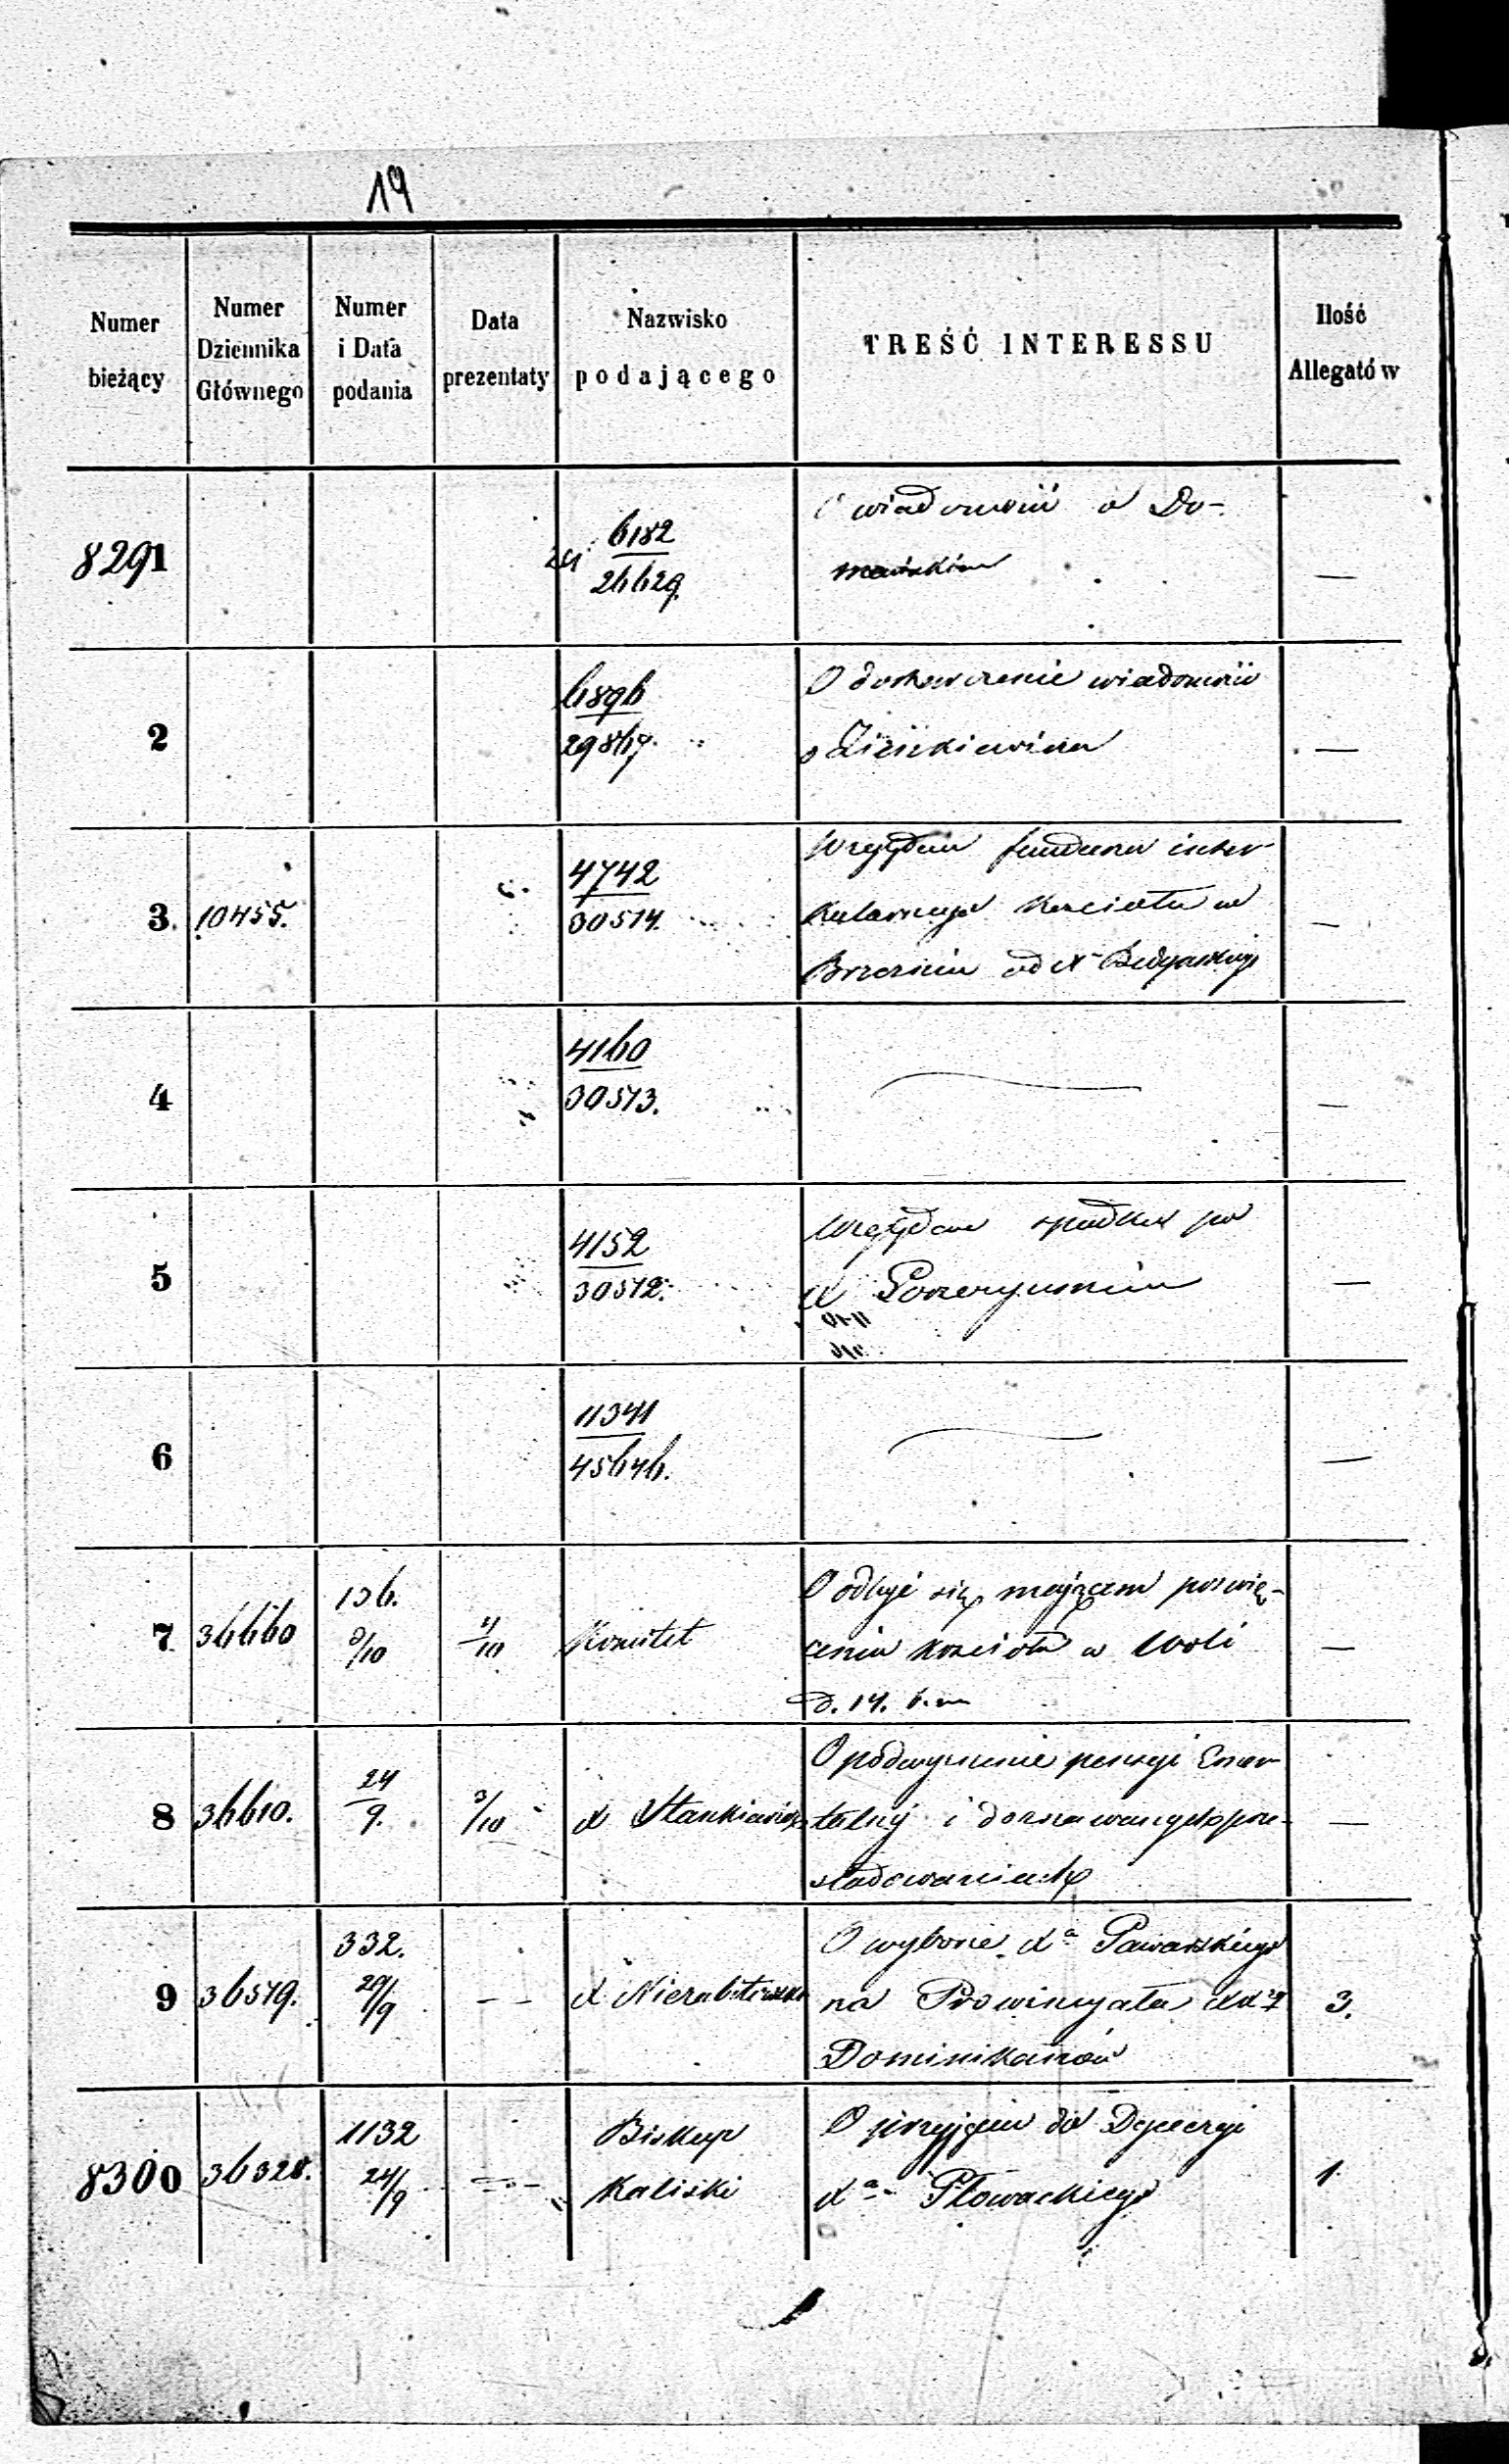 19
Numer bieżący
Numer Dziennika Głównego
Numer i Data podania
Data prezentaty
Nazwisko podającego
TREŚĆ INTERESSU
Ilość Allegatów
8291
6182
26629.
O wiadomość o Do-
mańskim
—
2
6896
29867.
O dostarczenie wiadomości
o Zienkiewiczu
—
3.
10455.
4742
30514.
Względem funduszu inter-
kalarnego Kościoła w
Brzeziu od X
—
4
4160
30513.
—
5
4152
30512.
Względem spadku po
X
—
6
11341
45646.
—
7
36660
136.
3/10
4/10
Komitet
O odbyć się mającem poświę-
ceniu Kościoła w Woli
d. 14. b. m
—
8
36610.
24
9.
3/10
X Stankiewicz
O podwyższenie pensyi Emer-
talnej i doznawanych prze-
śladowaniach
—
9
36579.
332.
29/9
— —
X Nierubiszewski
O wyborze Xa Pawarskiego
na Prowincyała XXy
Dominikanów
3.
8300
36328.
1132
24/9
Biskup
Kaliski
O przyjęciu do Dyecezyi
Xa Płowackiego
1